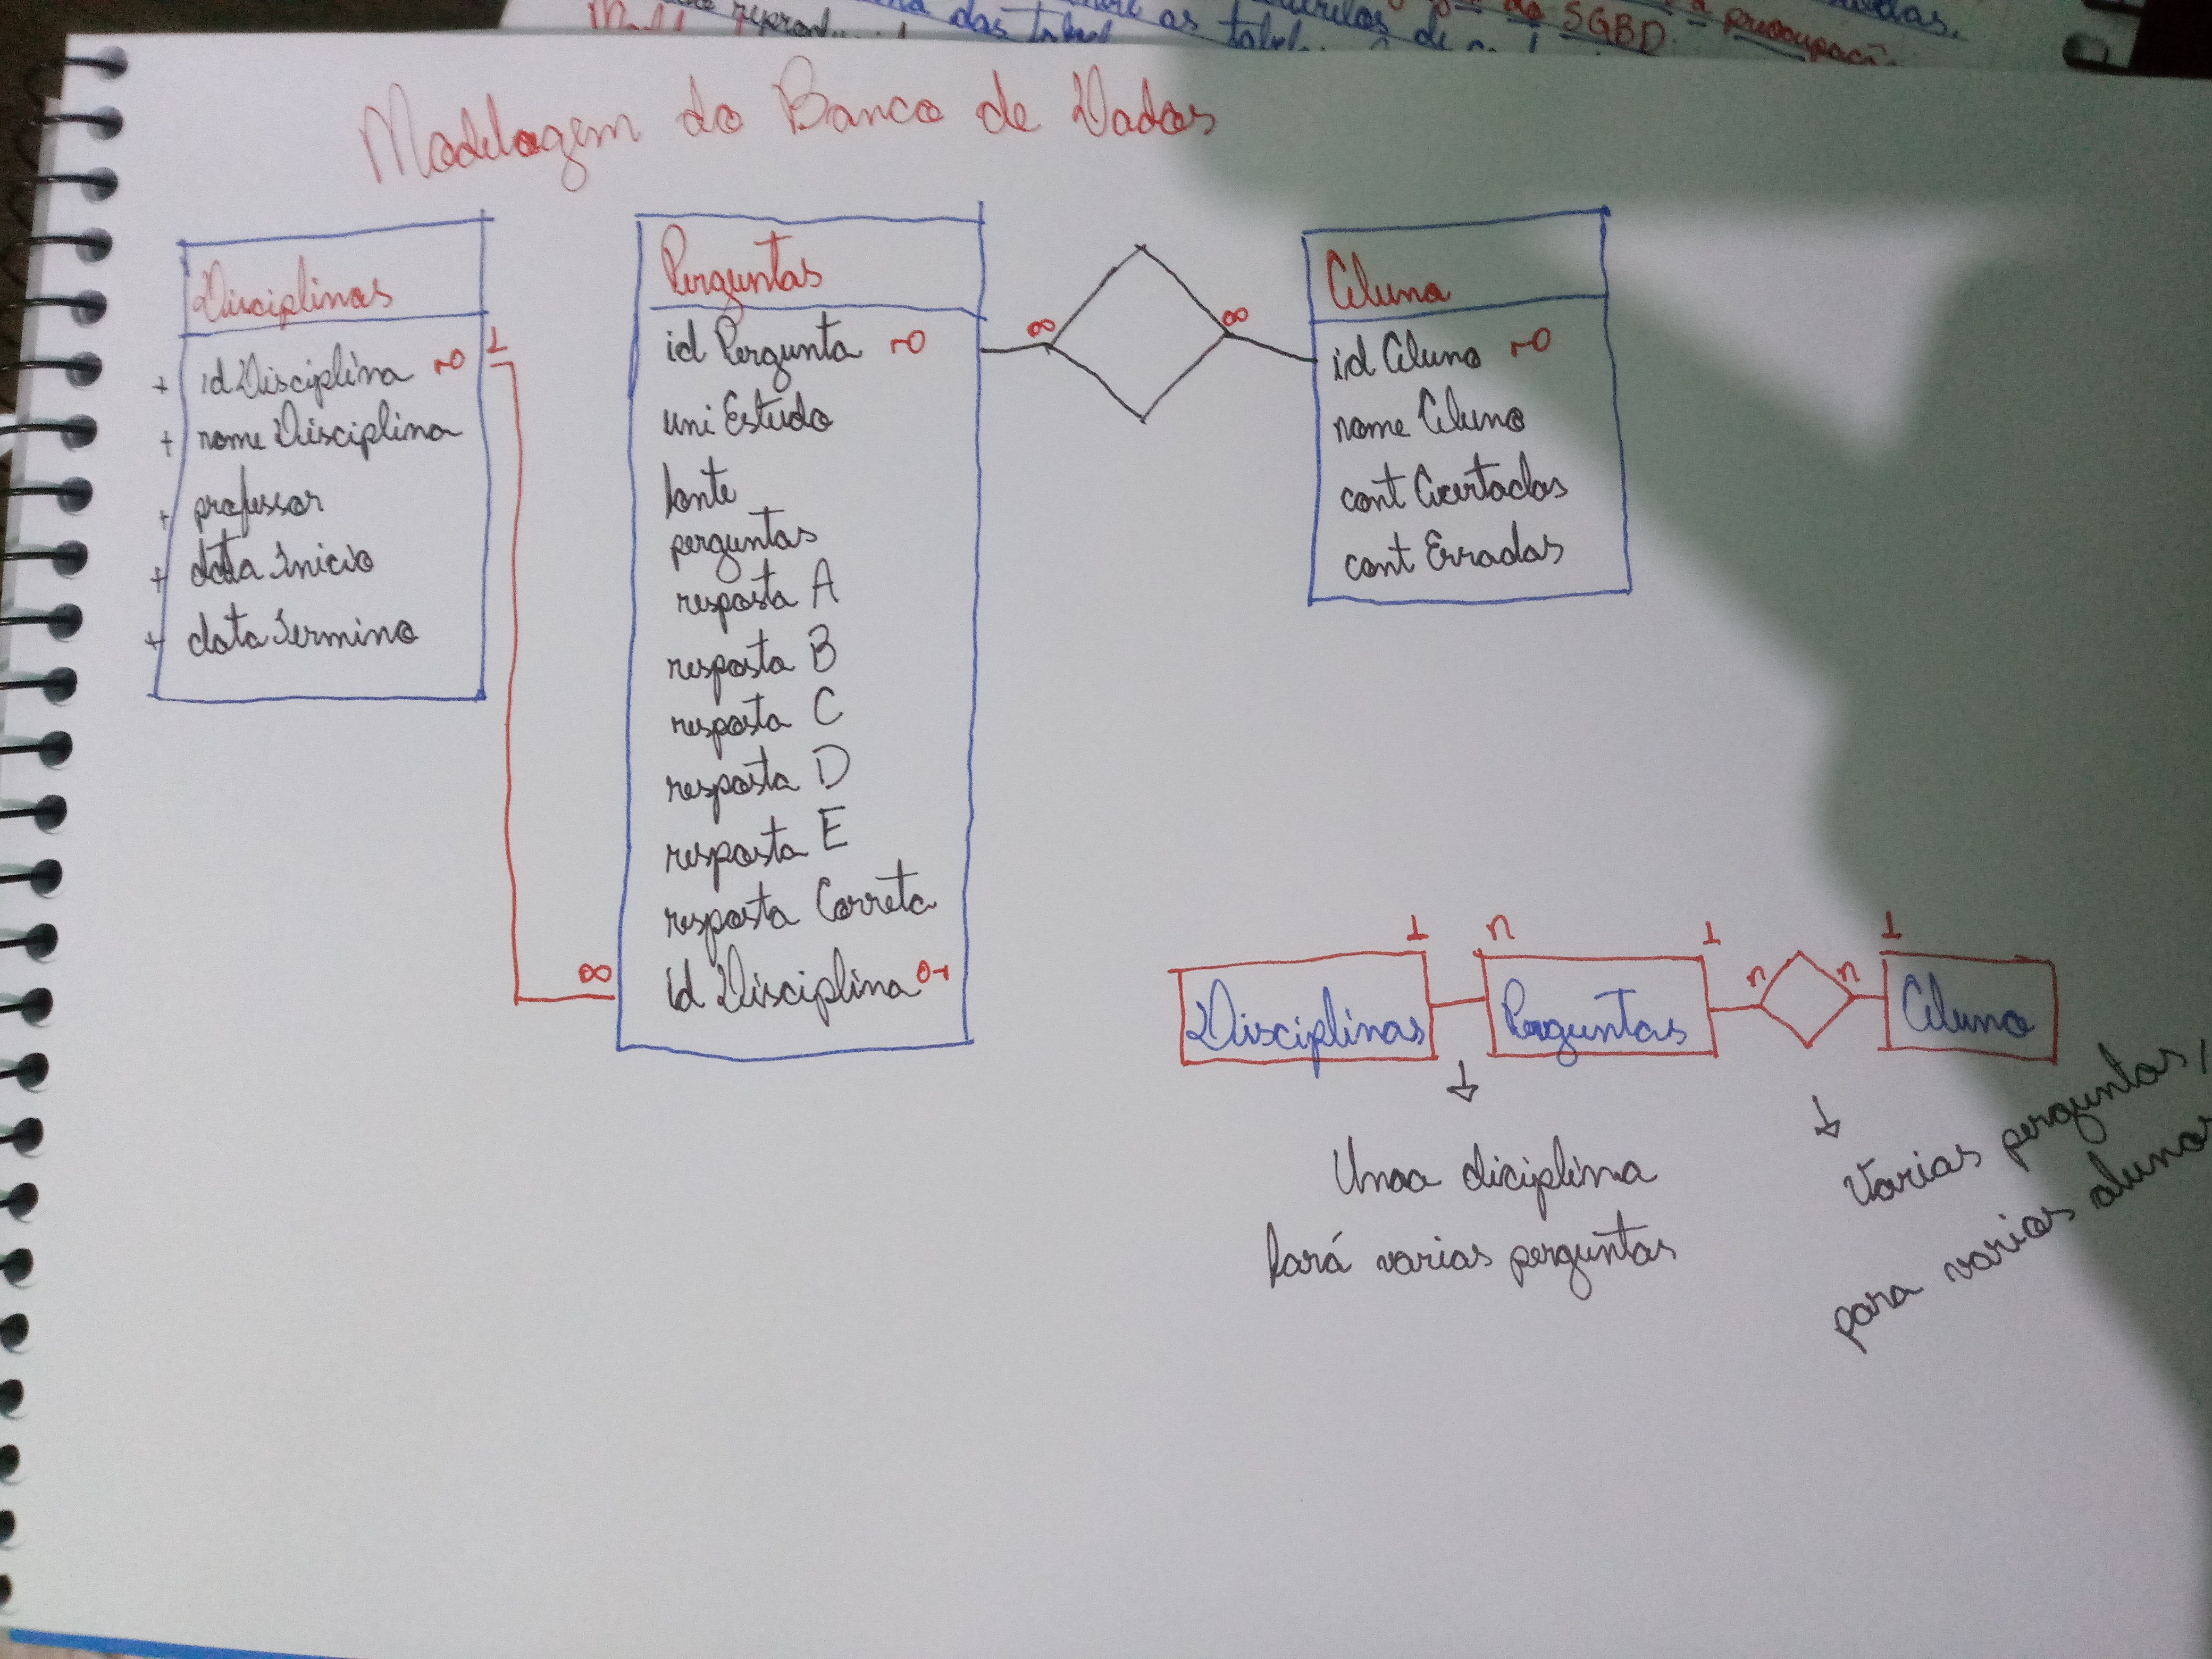 Modelagem do Banco de Dados
Disciplinas
+ idDisciplina
+ nome Disciplina
+ professor
+ data Inicio
+ data Termino
1
∞
Perguntas
id Pergunta
uni Estudo
fonte
perguntas
resposta A
resposta B
resposta C
resposta D
resposta E
resposta Correta
id Disciplina
∞
∞
Aluno
id Aluno
nome Aluno
cont Acertadas
cont Erradas
Disciplinas
1
n
Perguntas
1
n
n
1
Aluno
Uma diciplina
fará varias perguntas
Varias perguntas
para varios alunos
das
as
de
SGBD